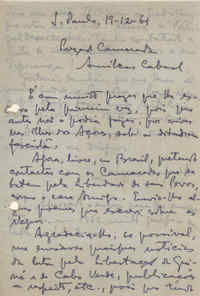 S. Paulo, 19-12-61
Prezado Camarada
Amilcar Cabral
É com muito prazer que lhe es-
crevo pela primeira vez, pois que
antes não o podia fazer, por viver
nas Ilhas dos Açores, sob a ditadura
fascista.
Agora, livre, no Brasil, pretendo
contactar com os Camaradas que lu-
tam pela liberdade de seus Povos,
como o caro Amigo. Envio-lhe al-
guns poemas que escrevi sobre os
Negros.
Agradecia-lhe, se possível,
me enviasse quaisquer notícias
da luta pela libertação da Gui-
né e de Cabo Verde, publicações
a respeito, etc., pois que tudo